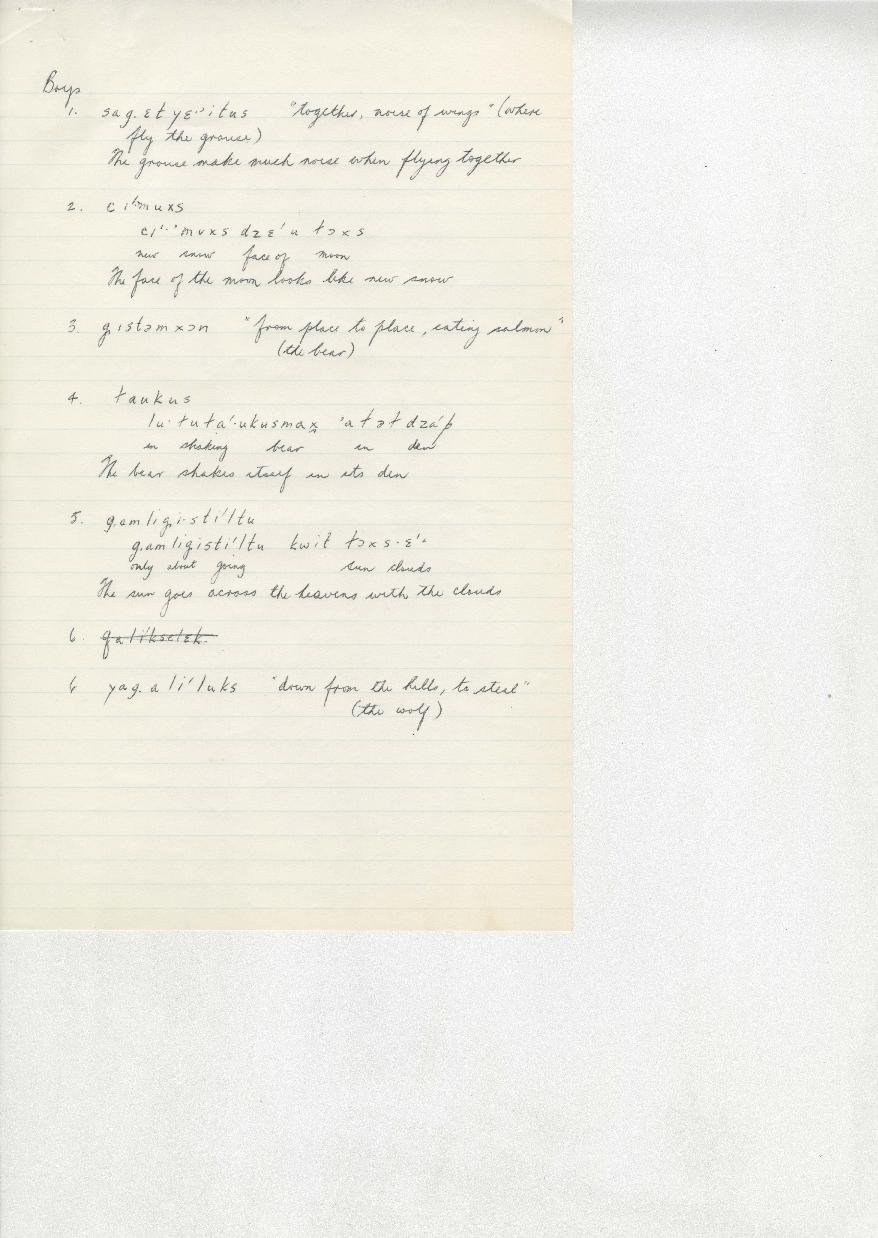 Boys
1. sag.ɛt yɛ·'itus "together, noise of wings" (where
fly the grouse)
The grouse make much noise when flying together
2. ci'·muxs
ci'·'muxs dzɛ'u tɔxs
new snow face of moon
The face of the moon looks like new snow
3. g.istəmxɔn "from place to place, eating salmon"
(the bear)
4. taukus
lu·tuta'·ukusmax̣ 'atətdza'p
in shaking bear in den
The bear shakes itself in its den
5. g.amligi·sti'ltu
g.amligisti'ltu kwit tɔxs·ɛ'·
only about going sun clouds
The sun goes across the heavens with the clouds
6.
6 yag.ali'luks "down from the hills, to steal"
(the wolf)